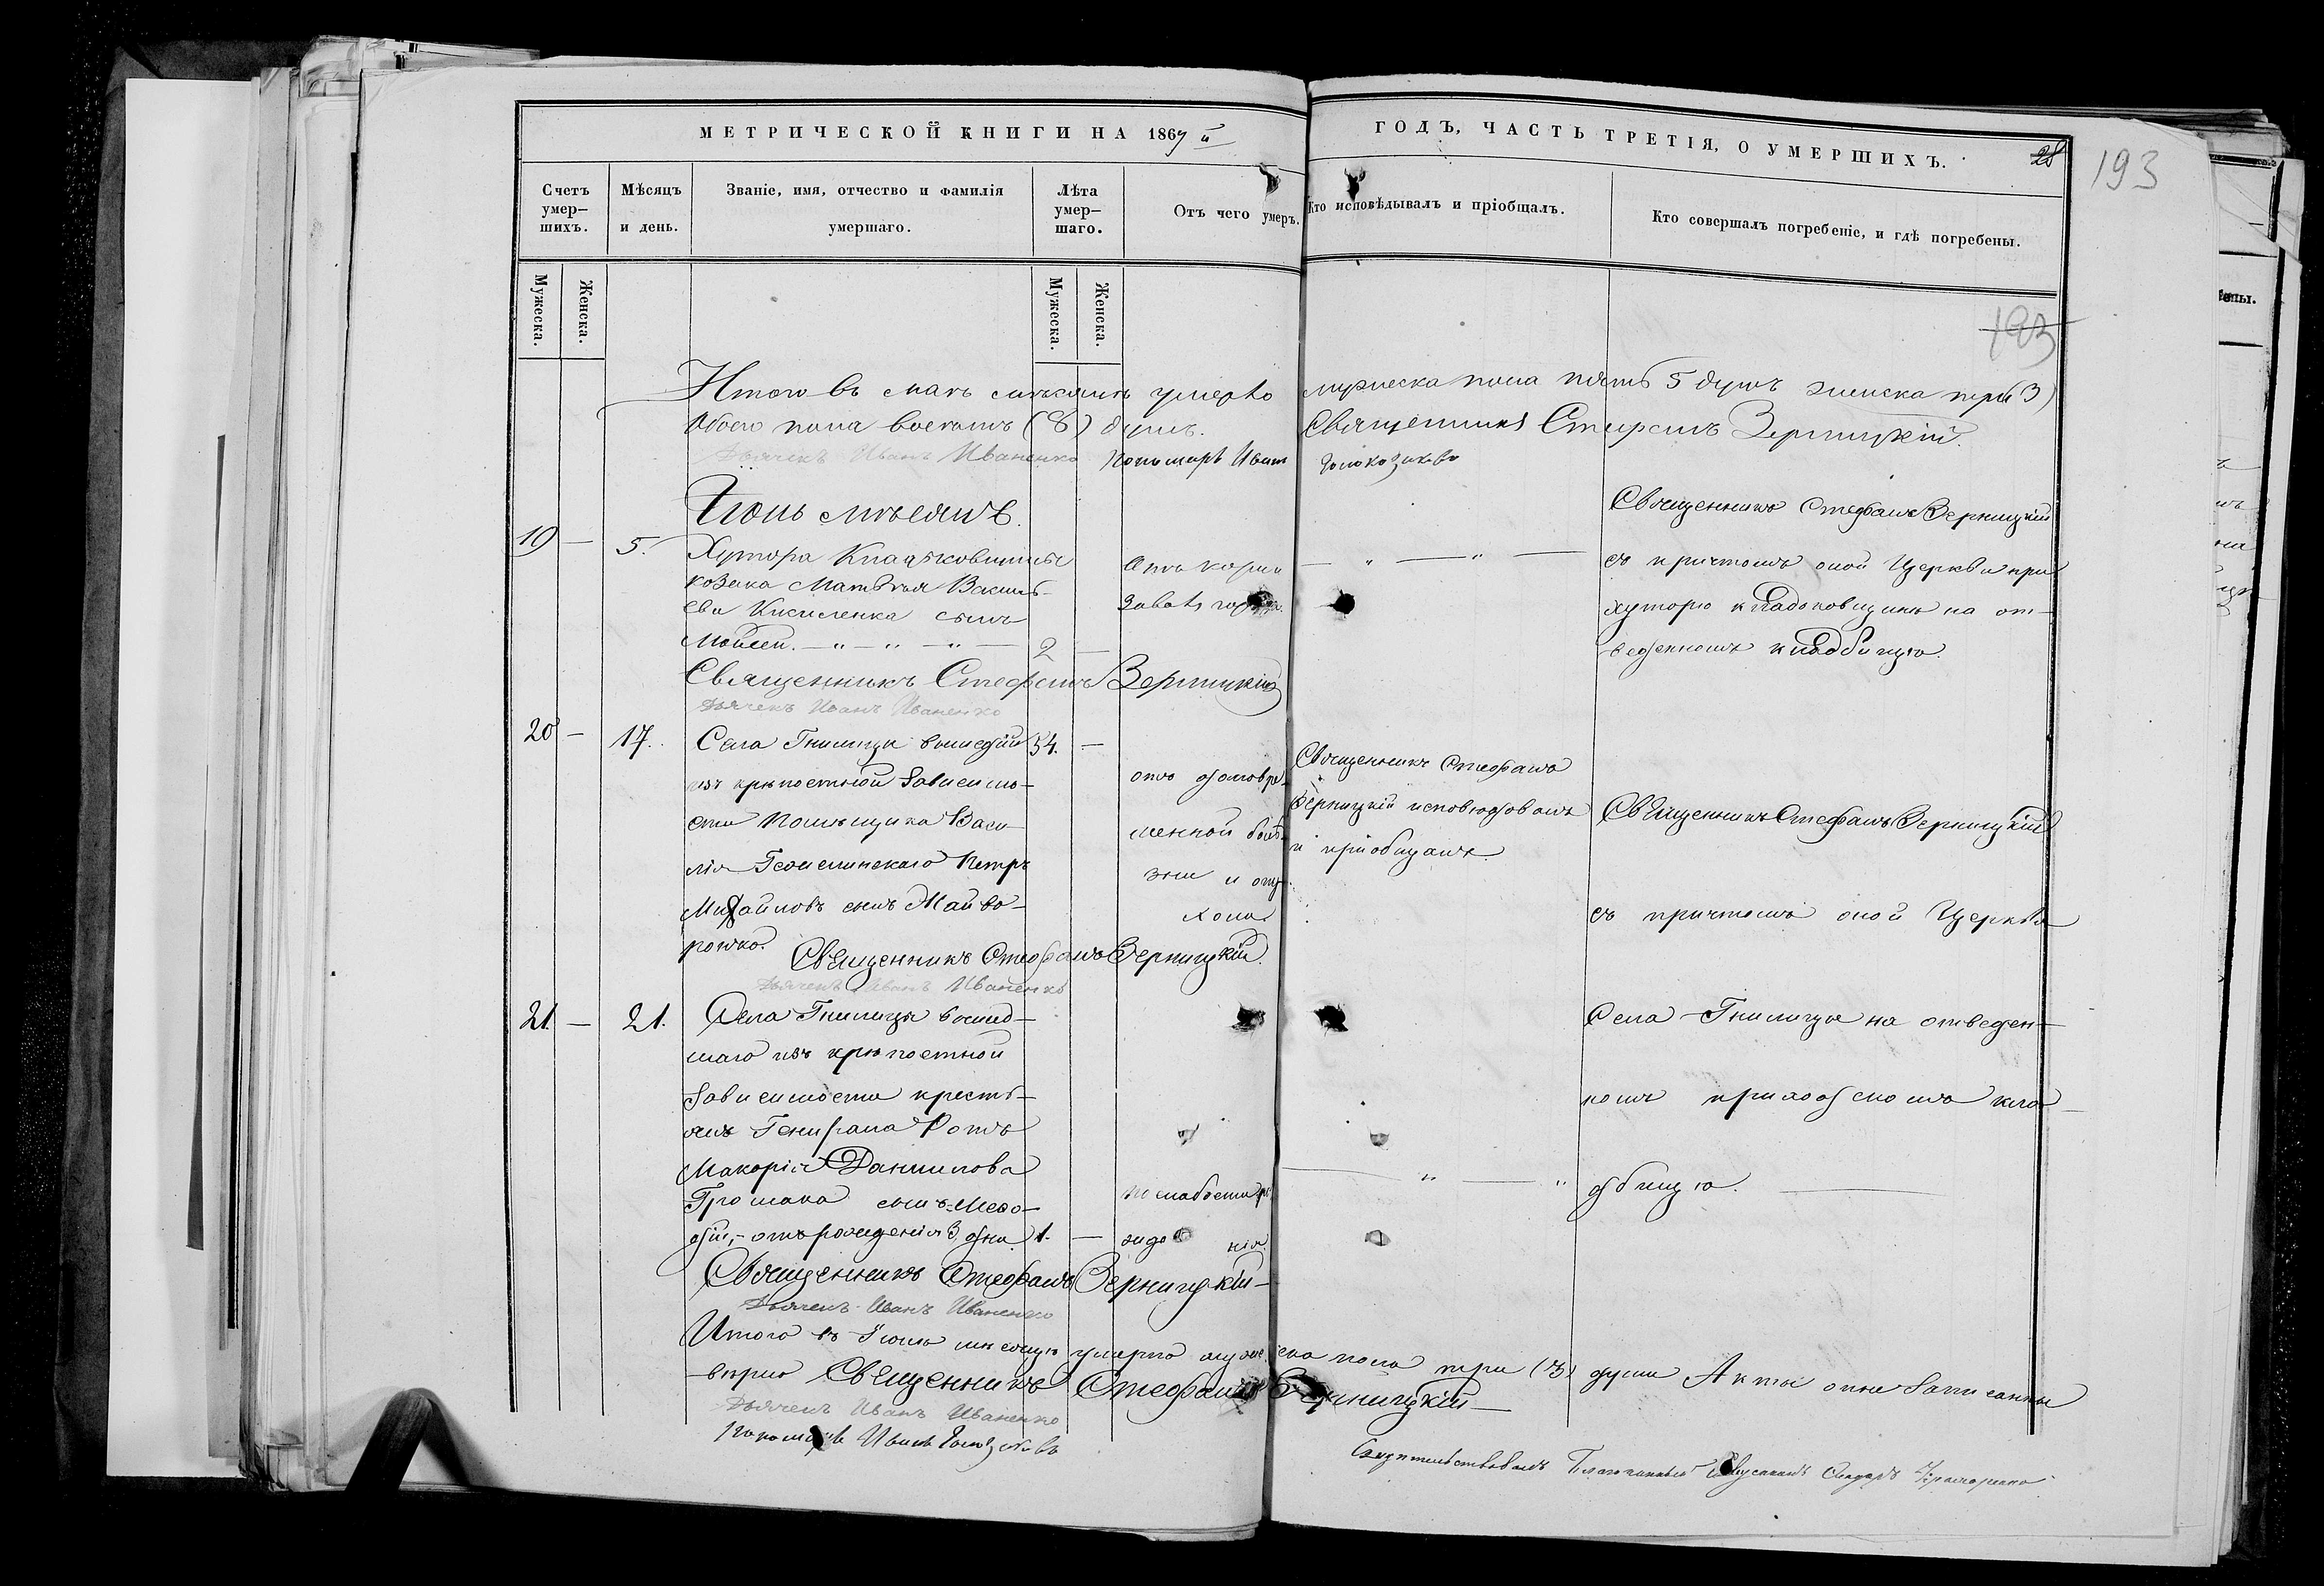 МЕТРИЧЕСКОЙ КНИГИ НА 1867 й
ГОДЪ, ЧАСТЬ ТРЕТІЯ, О УМЕРШИХЪ.
28
193
Счетъ умер-шихъ.
Мѣсяцъ и день.
Званіе, имя, отчество и фамилія умершаго.
Лѣта умер-шаго.
Отъ чего умеръ.
Кто исповѣдывалъ и пріобщалъ.
Кто совершалъ погребеніе, и гдѣ погребены.
Мужеска.
Женска.
Мужеска.
Женска.
193
Итого въ маѣ мѣсяцѣ умерло мужеска пола пять 5 душъ женска три 3)
Обоего пола восемь (8) душъ. Священникъ Стефанъ Верницкій.
Дьячекъ Иванъ Иваненко Пономарь Иванъ
Іюнь мѣсяцъ.
19 — 5.
Хутора
козака Матвѣя Василь-
ева Киселенка сынъ
Мойсей. — " — " — " — 2 —
Отъ
Священникъ Стефанъ Верницкій
съ причтомъ оной Церкви при
хуторѣ Кладьковщинѣ на от-
веденномъ кладбищѣ.
Священникъ Стефанъ Верницкій
Дьячекъ Иванъ Иваненко
20 — 17.
Села Гнилицы вышедшій 54. —
изъ крѣпостной зависимо-
сти Помѣщика Васи-
лія Петръ
Михайловъ сынъ Майбо-
рошко.
отъ долговре-
менной болѣ-
зни и опу-
хола
Священникъ Стефанъ
Верницкій исповѣдовалъ
и пріобщалъ.
Священникъ Стефанъ Верницкій
съ причтомъ оной Церкви
Священникъ Стефанъ Верницкій.
Дьячекъ Иванъ Иваненко
21 — 21.
Села Гнилицы вышед-
шаго изъ крѣпостной
зависимости кресть-
янъ Генерала Ротъ
Макарія Данилова
Громака сынъ Мефо-
дій, - отъ рожденія 3 дни 1. —
по слабости
Села Гнилицы на отведен-
номъ приходскомъ кла-
дбищѣ.
Священникъ Стефанъ Верницкій —
Дьячекъ Иванъ Иваненко
Итого въ Іюнѣ мѣсяцѣ умерло мужеска пола три (3) души Акты сіи записаны
вѣрно Священникъ Стефанъ Верницкій —
Дьячекъ Иванъ Иваненко
Пономарь Иванъ
Свидѣтельствовалъ Благочинный